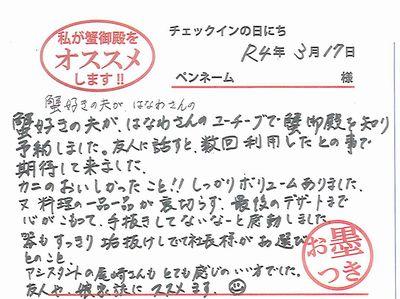 私が蟹御殿を
オススメ
します!!
チェックインの日にち
R4年 3月17日
ペンネーム 様
蟹好きの夫が はなわさんの
蟹好きの夫が、はなわさんのユーチーブで蟹御殿を知り
予約しました。友人に話すと、数回利用したとの事で
期待して来ました。
カニのおいしかったこと!! しっかりボリュームありました。
又 料理の一品一品が裏切らず、最後のデザートまで
心がこもって、手抜きしてないなーと感動しました。
器もすっきり垢抜けしてて社長様がお選び
とのこと。
アシスタントの尾崎さんも とても感じのいい方でした。
友人や、娘家族に ススメます。
お墨
つき